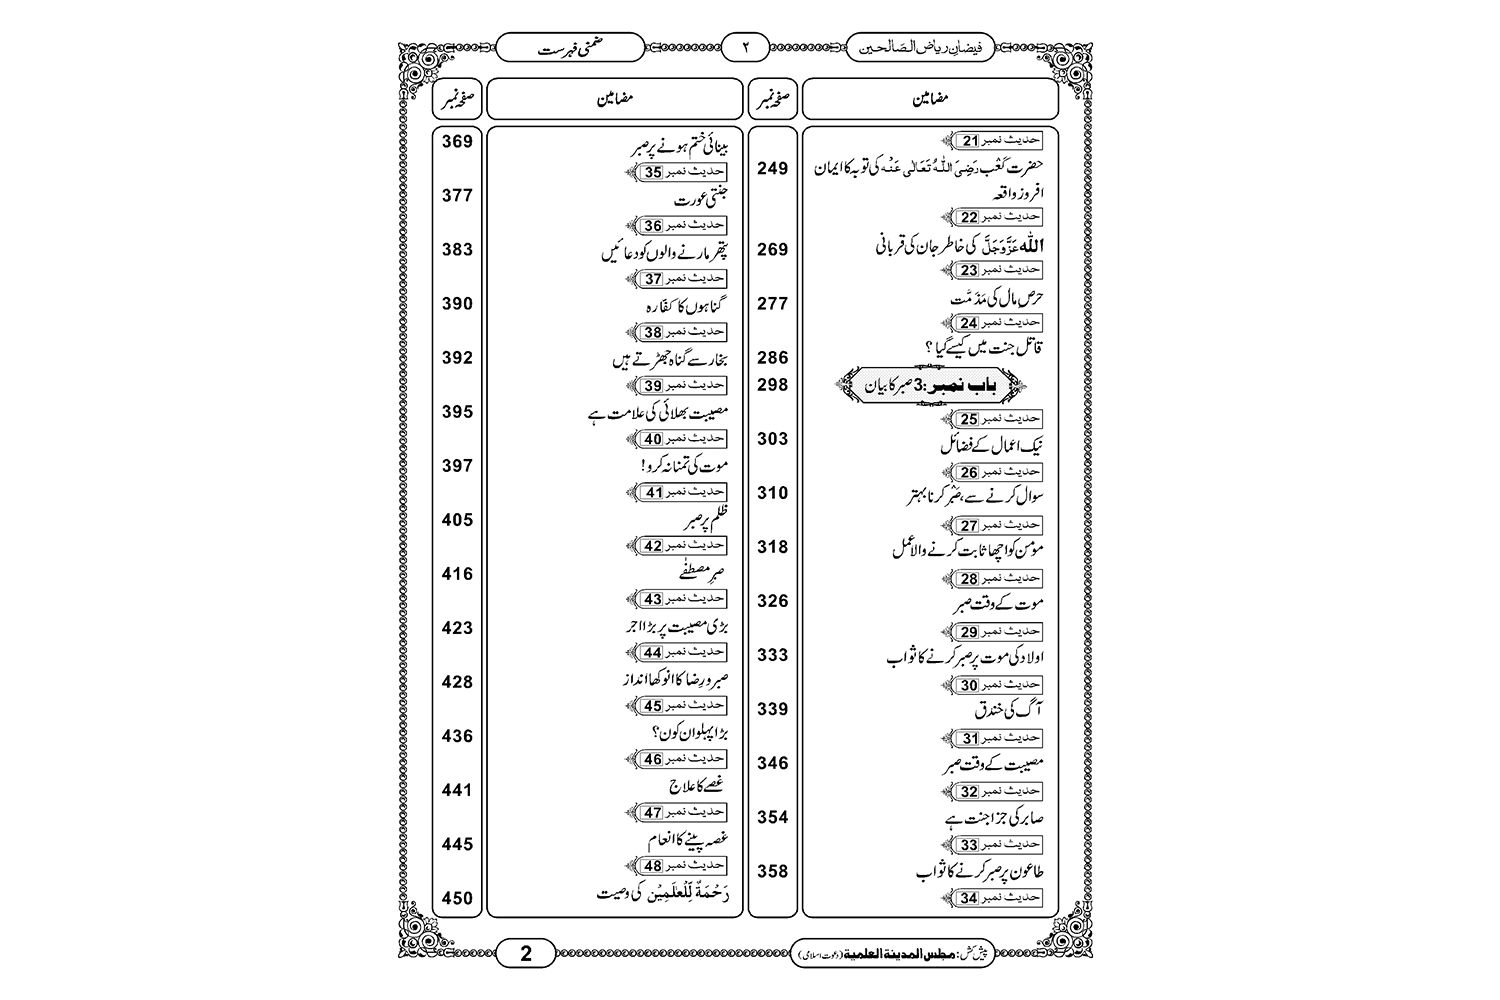 فیضانِ ریاض الصالحین
۲
ضمنی فہرست
مضامین
صفحہ نمبر
مضامین
صفحہ نمبر
حدیث نمبر 21
حضرت کَعْب رَضِیَ اللّٰہُ تَعَالٰی عَنْہ کی توبہ کا ایمان 249
افروز واقعہ
حدیث نمبر 22
اللّٰہ عَزَّوَجَلَّ کی خاطر جان کی قربانی 269
حدیث نمبر 23
حرصِ مال کی مَذمَّت 277
حدیث نمبر 24
قاتل جنت میں کیسے گیا ؟ 286
باب نمبر :3 صبر کا بیان 298
حدیث نمبر 25
نیک اعمال کے فضائل 303
حدیث نمبر 26
سوال کرنے سے، صَبْر کرنا بہتر 310
حدیث نمبر 27
مؤمن کو اچھا ثابت کرنے والا عمل 318
حدیث نمبر 28
موت کے وقت صبر 326
حدیث نمبر 29
اولاد کی موت پر صبر کرنے کا ثواب 333
حدیث نمبر 30
آگ کی خندق 339
حدیث نمبر 31
مصیبت کے وقت صبر 346
حدیث نمبر 32
صابر کی جزا جنت ہے 354
حدیث نمبر 33
طاعون پر صبر کرنے کا ثواب 358
حدیث نمبر 34
بینائی ختم ہونے پر صبر 369
حدیث نمبر 35
جنتی عورت 377
حدیث نمبر 36
پتھر مارنے والوں کو دعائیں 383
حدیث نمبر 37
گناہوں کا کفّارہ 390
حدیث نمبر 38
بخار سے گناہ جھڑتے ہیں 392
حدیث نمبر 39
مصیبت بھلائی کی علامت ہے 395
حدیث نمبر 40
موت کی تمنا نہ کرو! 397
حدیث نمبر 41
ظلم پر صبر 405
حدیث نمبر 42
صبرِ مصطفٰے 416
حدیث نمبر 43
بڑی مصیبت پر بڑا اجر 423
حدیث نمبر 44
صبر و رِضا کا انوکھا انداز 428
حدیث نمبر 45
بڑا پہلوان کون؟ 436
حدیث نمبر 46
غصے کا علاج 441
حدیث نمبر 47
غصہ پینے کا انعام 445
حدیث نمبر 48
رَحْمَةٌ لِّلْعٰلَمِیْن کی وصیت 450
پیش کش: مجلس المدینۃ العلمیۃ (دعوت اسلامی)
2